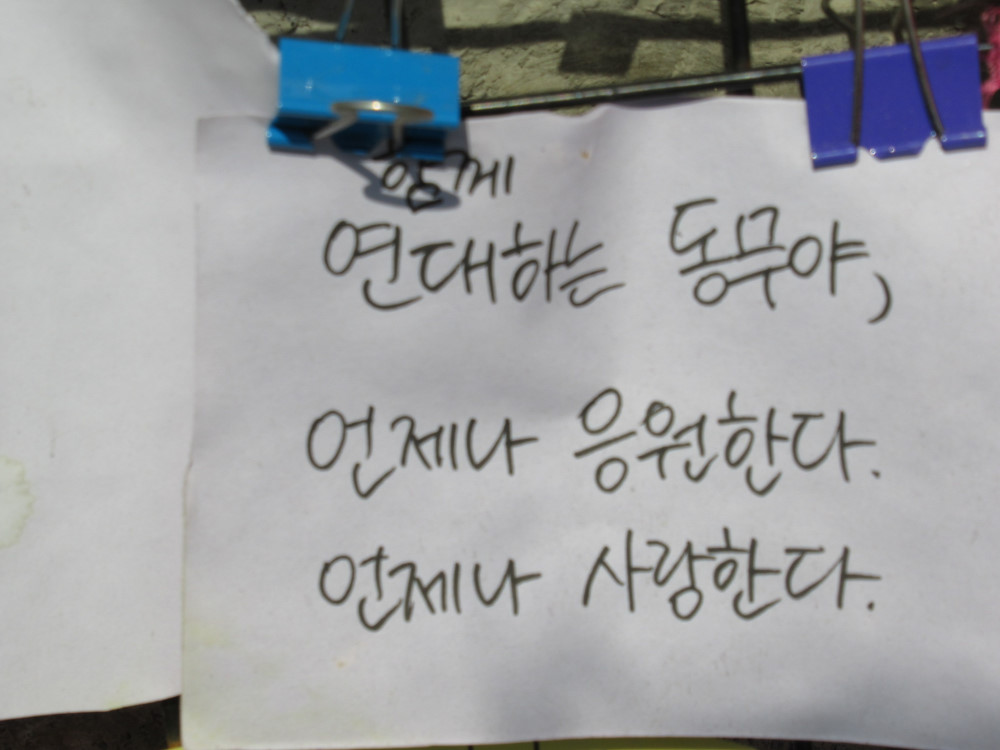 함께
연대하는 동무야,
언제나 응원한다.
언제나 사랑한다.